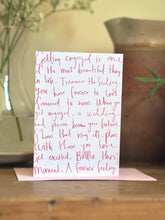 Getting engaged is one
of the most beautiful things
in life. Treasure this feeling
you have forever to look
forward to now. When you
get engaged, a wedding
and person know you
Show that ring off, share
with those you love
get excited. Bottle this
moment. A forever feeling